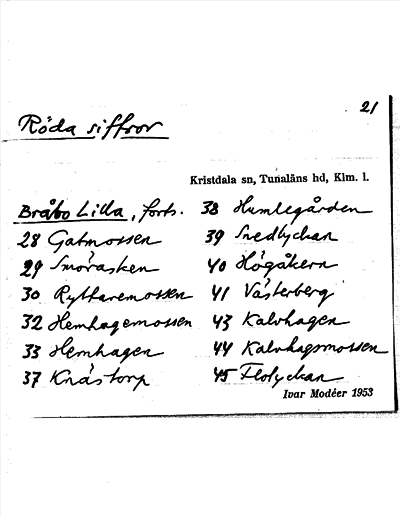 21
Röda siffror
Kristdala sn, Tunaläns hd, Klm. l.
Bråbo Lilla, forts.
28 Gatmossen
29 Smörasken
30 Ryttaremossen
32 Hemhagemossen
33 Hemhagen
37 Knästorp
38 Humlegården
39 Snedlyckan
40 Högåkern
41 Västerberg
43 Kalvhagen
44 Kalvhagsmossen
45 Flolyckan
Ivar Modéer 1953